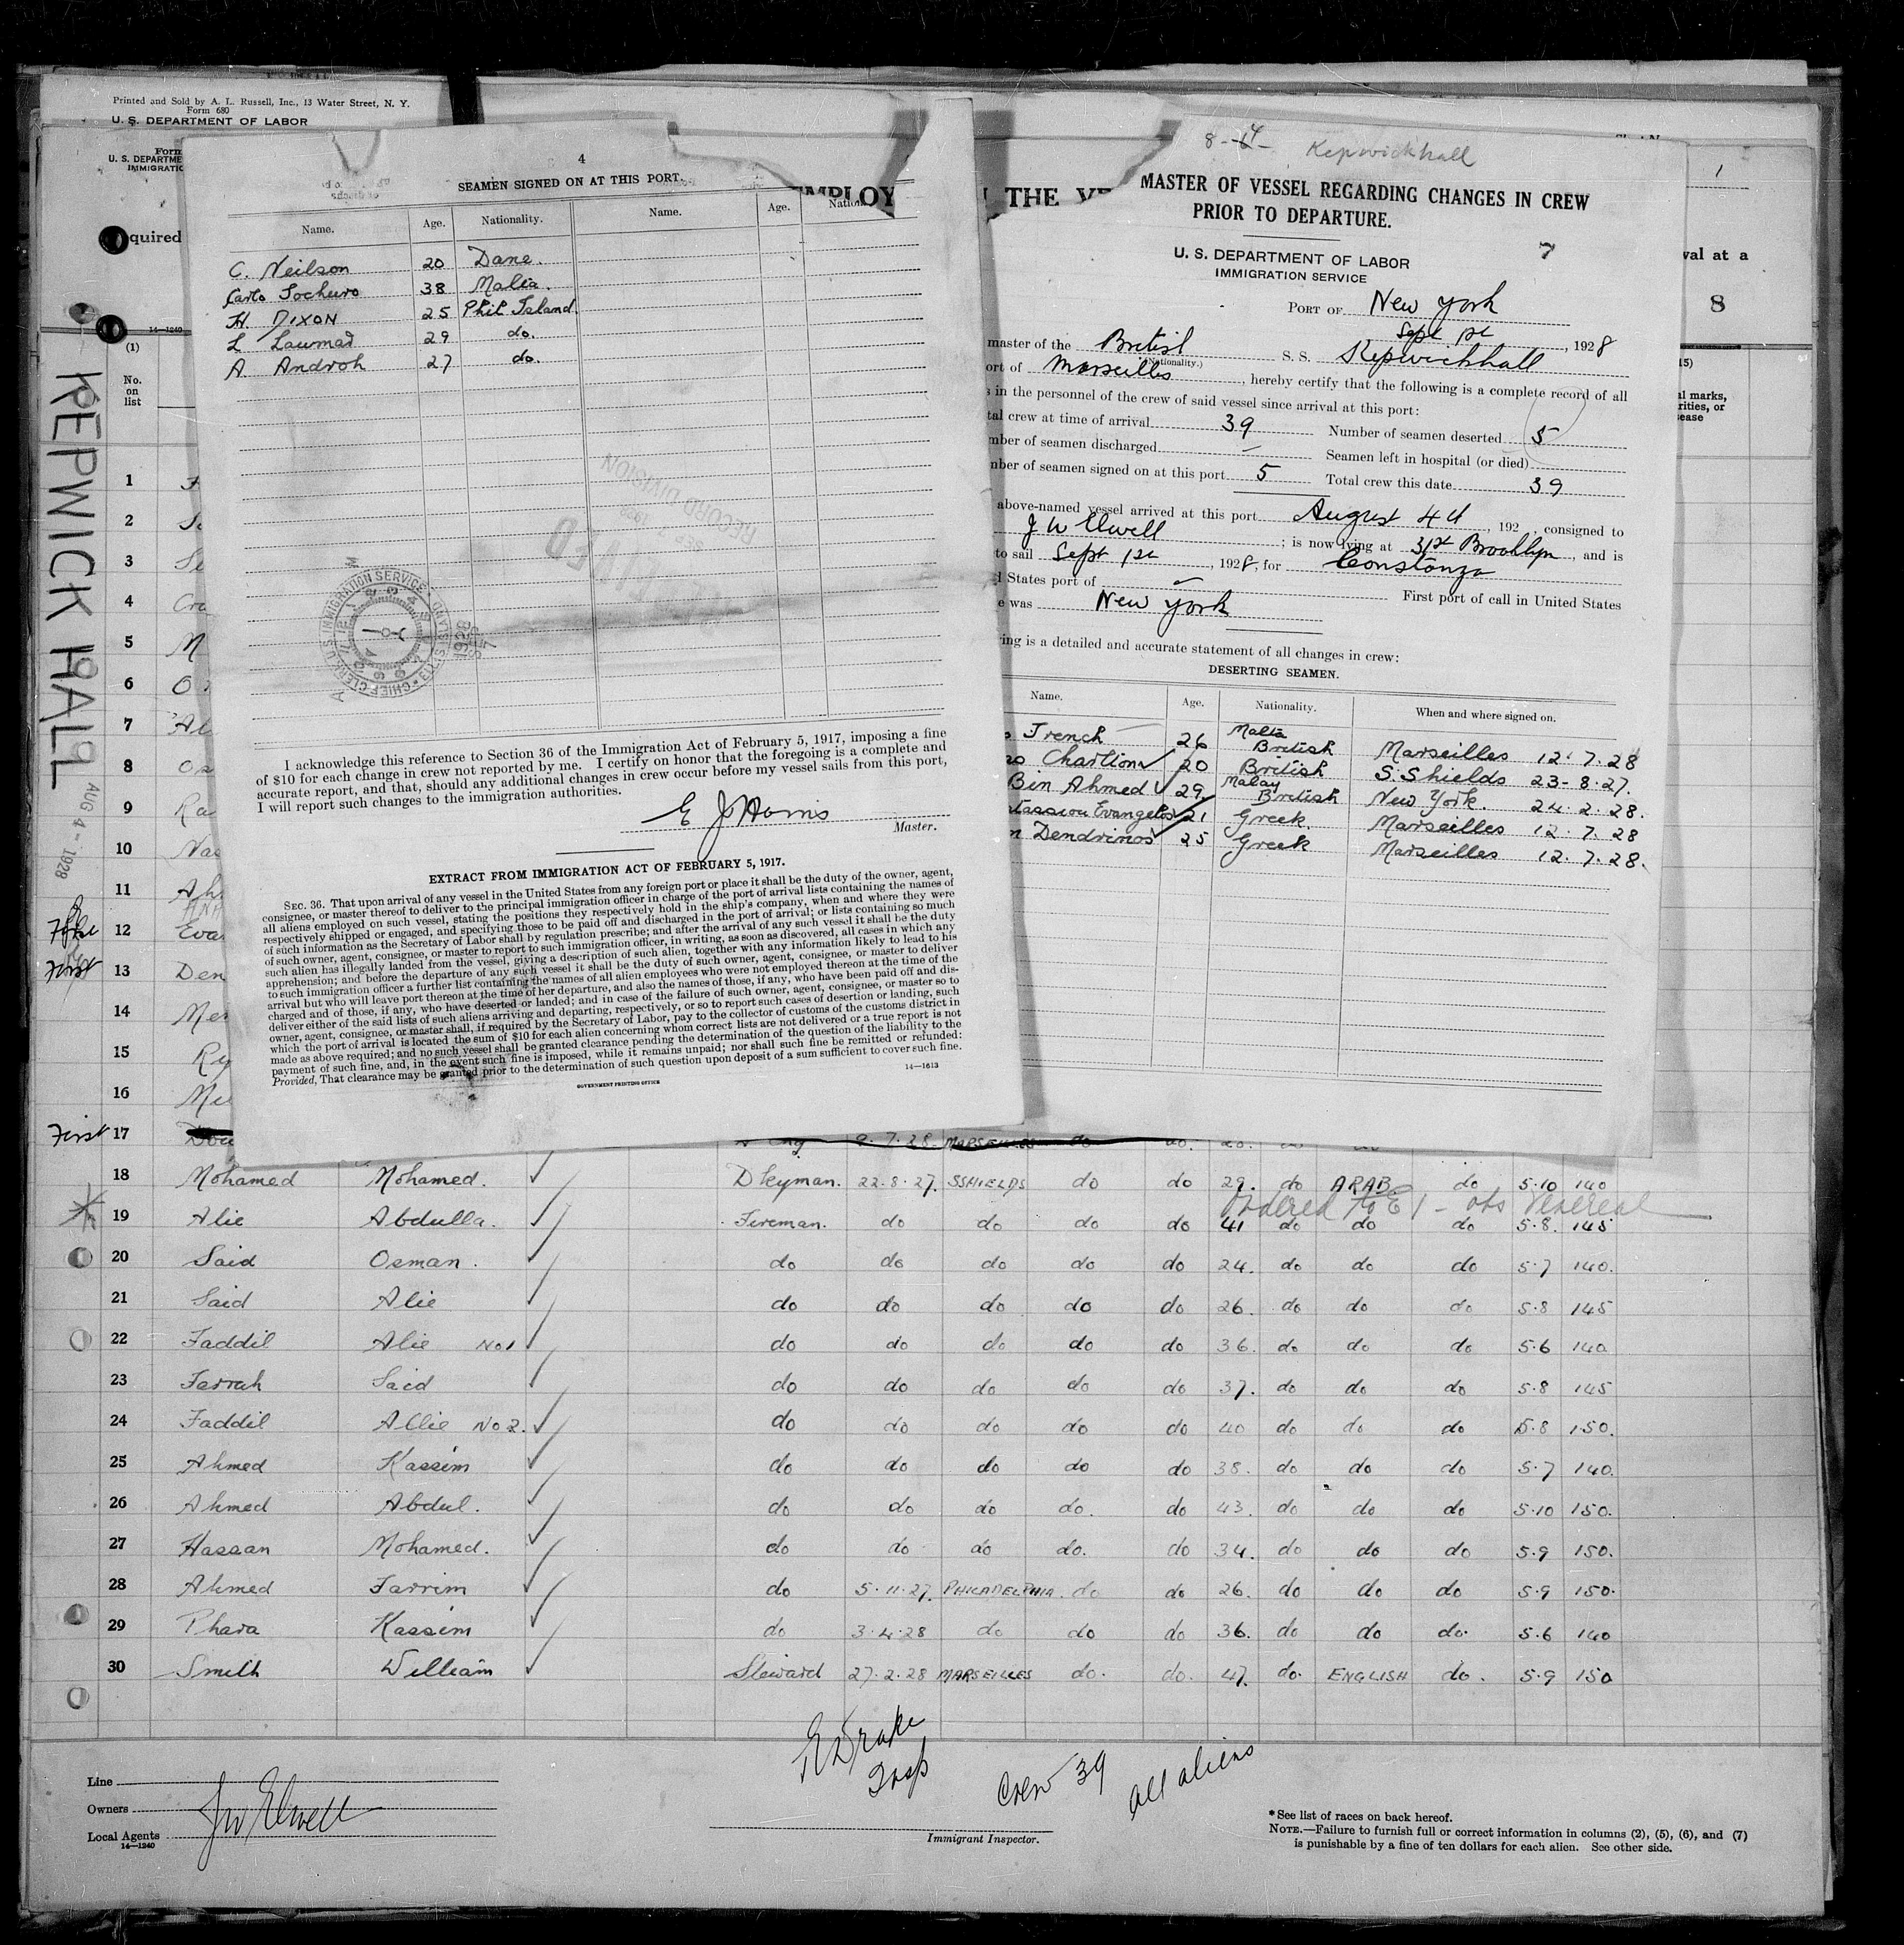 Printed and Sold by A. L. Russell, Inc., 13 Water Street, N. Y.
Form 680
U. S. DEPARTMENT OF LABOR
Form
U. S. DEPARTME
IMMIGRATIO
quired
14—1240
EMPLOY
THE VE
val at a
1
8
(1)
No.
on
list
15)
al marks,
rities, or
ease
KEPWICK HALL
AUG 4 - 1928
4
SEAMEN SIGNED ON AT THIS PORT.
Name. Age. Nationality. Name. Age. Nation
C. Neilson 20 Dane.
Carlo Sochuro 38 Malta.
H. DIXON 25 Phil Island.
L Lawmad 29 do.
A Androh 27 do.
RECEIVED
RECORD DIVISION
CHIEF CLERK U.S. IMMIGRATION SERVICE
1928
I acknowledge this reference to Section 36 of the Immigration Act of February 5, 1917, imposing a fine
of $10 for each change in crew not reported by me. I certify on honor that the foregoing is a complete and
accurate report, and that, should any additional changes in crew occur before my vessel sails from this port,
I will report such changes to the immigration authorities.
E J Harris
Master.
EXTRACT FROM IMMIGRATION ACT OF FEBRUARY 5, 1917.
SEC. 36. That upon arrival of any vessel in the United States from any foreign port or place it shall be the duty of the owner, agent,
consignee, or master thereof to deliver to the principal immigration officer in charge of the port of arrival lists containing the names of
all aliens employed on such vessel, stating the positions they respectively hold in the ship's company, when and where they were
respectively shipped or engaged, and specifying those to be paid off and discharged in the port of arrival; or lists containing so much
of such information as the Secretary of Labor shall by regulation prescribe; and after the arrival of any such vessel it shall be the duty
of such owner, agent, consignee, or master to report to such immigration officer, in writing, as soon as discovered, all cases in which any
such alien has illegally landed from the vessel, giving a description of such alien, together with any information likely to lead to his
apprehension; and before the departure of any such vessel it shall be the duty of such owner, agent, consignee, or master to deliver
to such immigration officer a further list containing the names of all alien employees who were not employed thereon at the time of the
arrival but who will leave port thereon at the time of her departure, and also the names of those, if any, who have been paid off and dis-
charged and of those, if any, who have deserted or landed; and in case of the failure of such owner, agent, consignee, or master so to
deliver either of the said lists of such aliens arriving and departing, respectively, or so to report such cases of desertion or landing, such
owner, agent, consignee, or master shall, if required by the Secretary of Labor, pay to the collector of customs of the customs district in
which the port of arrival is located the sum of $10 for each alien concerning whom correct lists are not delivered or a true report is not
made as above required; and no such vessel shall be granted clearance pending the determination of the question of the liability to the
payment of such fine, and, in the event such fine is imposed, while it remains unpaid; nor shall such fine be remitted or refunded:
Provided, That clearance may be granted prior to the determination of such question upon deposit of a sum sufficient to cover such fine.
GOVERNMENT PRINTING OFFICE
14—1613
Kepwickhall
MASTER OF VESSEL REGARDING CHANGES IN CREW
PRIOR TO DEPARTURE.
7
U. S. DEPARTMENT OF LABOR
IMMIGRATION SERVICE
PORT OF New York
Sept 1st, 1928
master of the British S. S. Kepwickhall
(Nationality.)
ort of Marseilles, hereby certify that the following is a complete record of all
s in the personnel of the crew of said vessel since arrival at this port:
tal crew at time of arrival 39 Number of seamen deserted 5
mber of seamen discharged — Seamen left in hospital (or died)
mber of seamen signed on at this port 5 Total crew this date 39
above-named vessel arrived at this port August 4th, 192 , consigned to
J W Elwell; is now lying at 31st Brooklyn, and is
to sail Sept 1st, 1928, for Constanza
d States port of — First port of call in United States
e was New York
ing is a detailed and accurate statement of all changes in crew:
DESERTING SEAMEN.
Name. Age. Nationality. When and where signed on.
French 26 Malta British Marseilles 12.7.28
Charlton 20 British S. Shields 23-8-27.
Bin Ahmed 29. Malay British New York. 24.2.28.
tassiou Evangelos 21 Greek. Marseilles 12.7.28
n Dendrinos 25 Greek Marseilles 12.7.28.
1
2
3 Se
4 Cra
5 M
6 O
7 Al
8
9 Ra
10 Nas
11 Ah
12 Evan
First 13 Den
14 Mer
15 Ry
16 Me
First 17 9.7.28. MARSEILLES do do. 20. do do
18 Mohamed Mohamed. Dkyman. 22.8.27. SSHIELDS do do 29. do ARAB do 5.10 140
Ordered to E I - obs Venereal
19 Alie Abdulla. Fireman. do do do do 41 do do do 5.8. 145
20 Said Osman. do do do do do 24. do do do 5.7 140.
21 Said Alie do do do do do 26. do do do 5.8 145
22 Faddil Alie No1 do do do do do 36. do do do 5.6 140
23 Farrah Said do do do do do 37. do do do 5.8 145
24 Faddil Allie No2. do do do do do 40 do do do 5.8 150.
25 Ahmed Kassim do do do do do 38. do do do 5.7 140.
26 Ahmed Abdul. do do do do. do 43. do do do 5.10 150.
27 Hassan Mohamed. do do do do. do 34. do do do 5.9 150.
28 Ahmed Farrim do 5.11.27. PHILADELPHIA. do do 26. do do do 5.9 150.
29 Phara Kassim do 3.4.28 do do do 36. do do do. 5.6 140
30 Smith William Steward 27.2.28 MARSEILLES do. do. 47. do. ENGLISH do. 5.9 150
E Drake
Insp
Crew 39
all aliens
Line
Owners
Local Agents
JW Elwell
14—1240
Immigrant Inspector.
*See list of races on back hereof.
NOTE.—Failure to furnish full or correct information in columns (2), (5), (6), and (7)
is punishable by a fine of ten dollars for each alien. See other side.